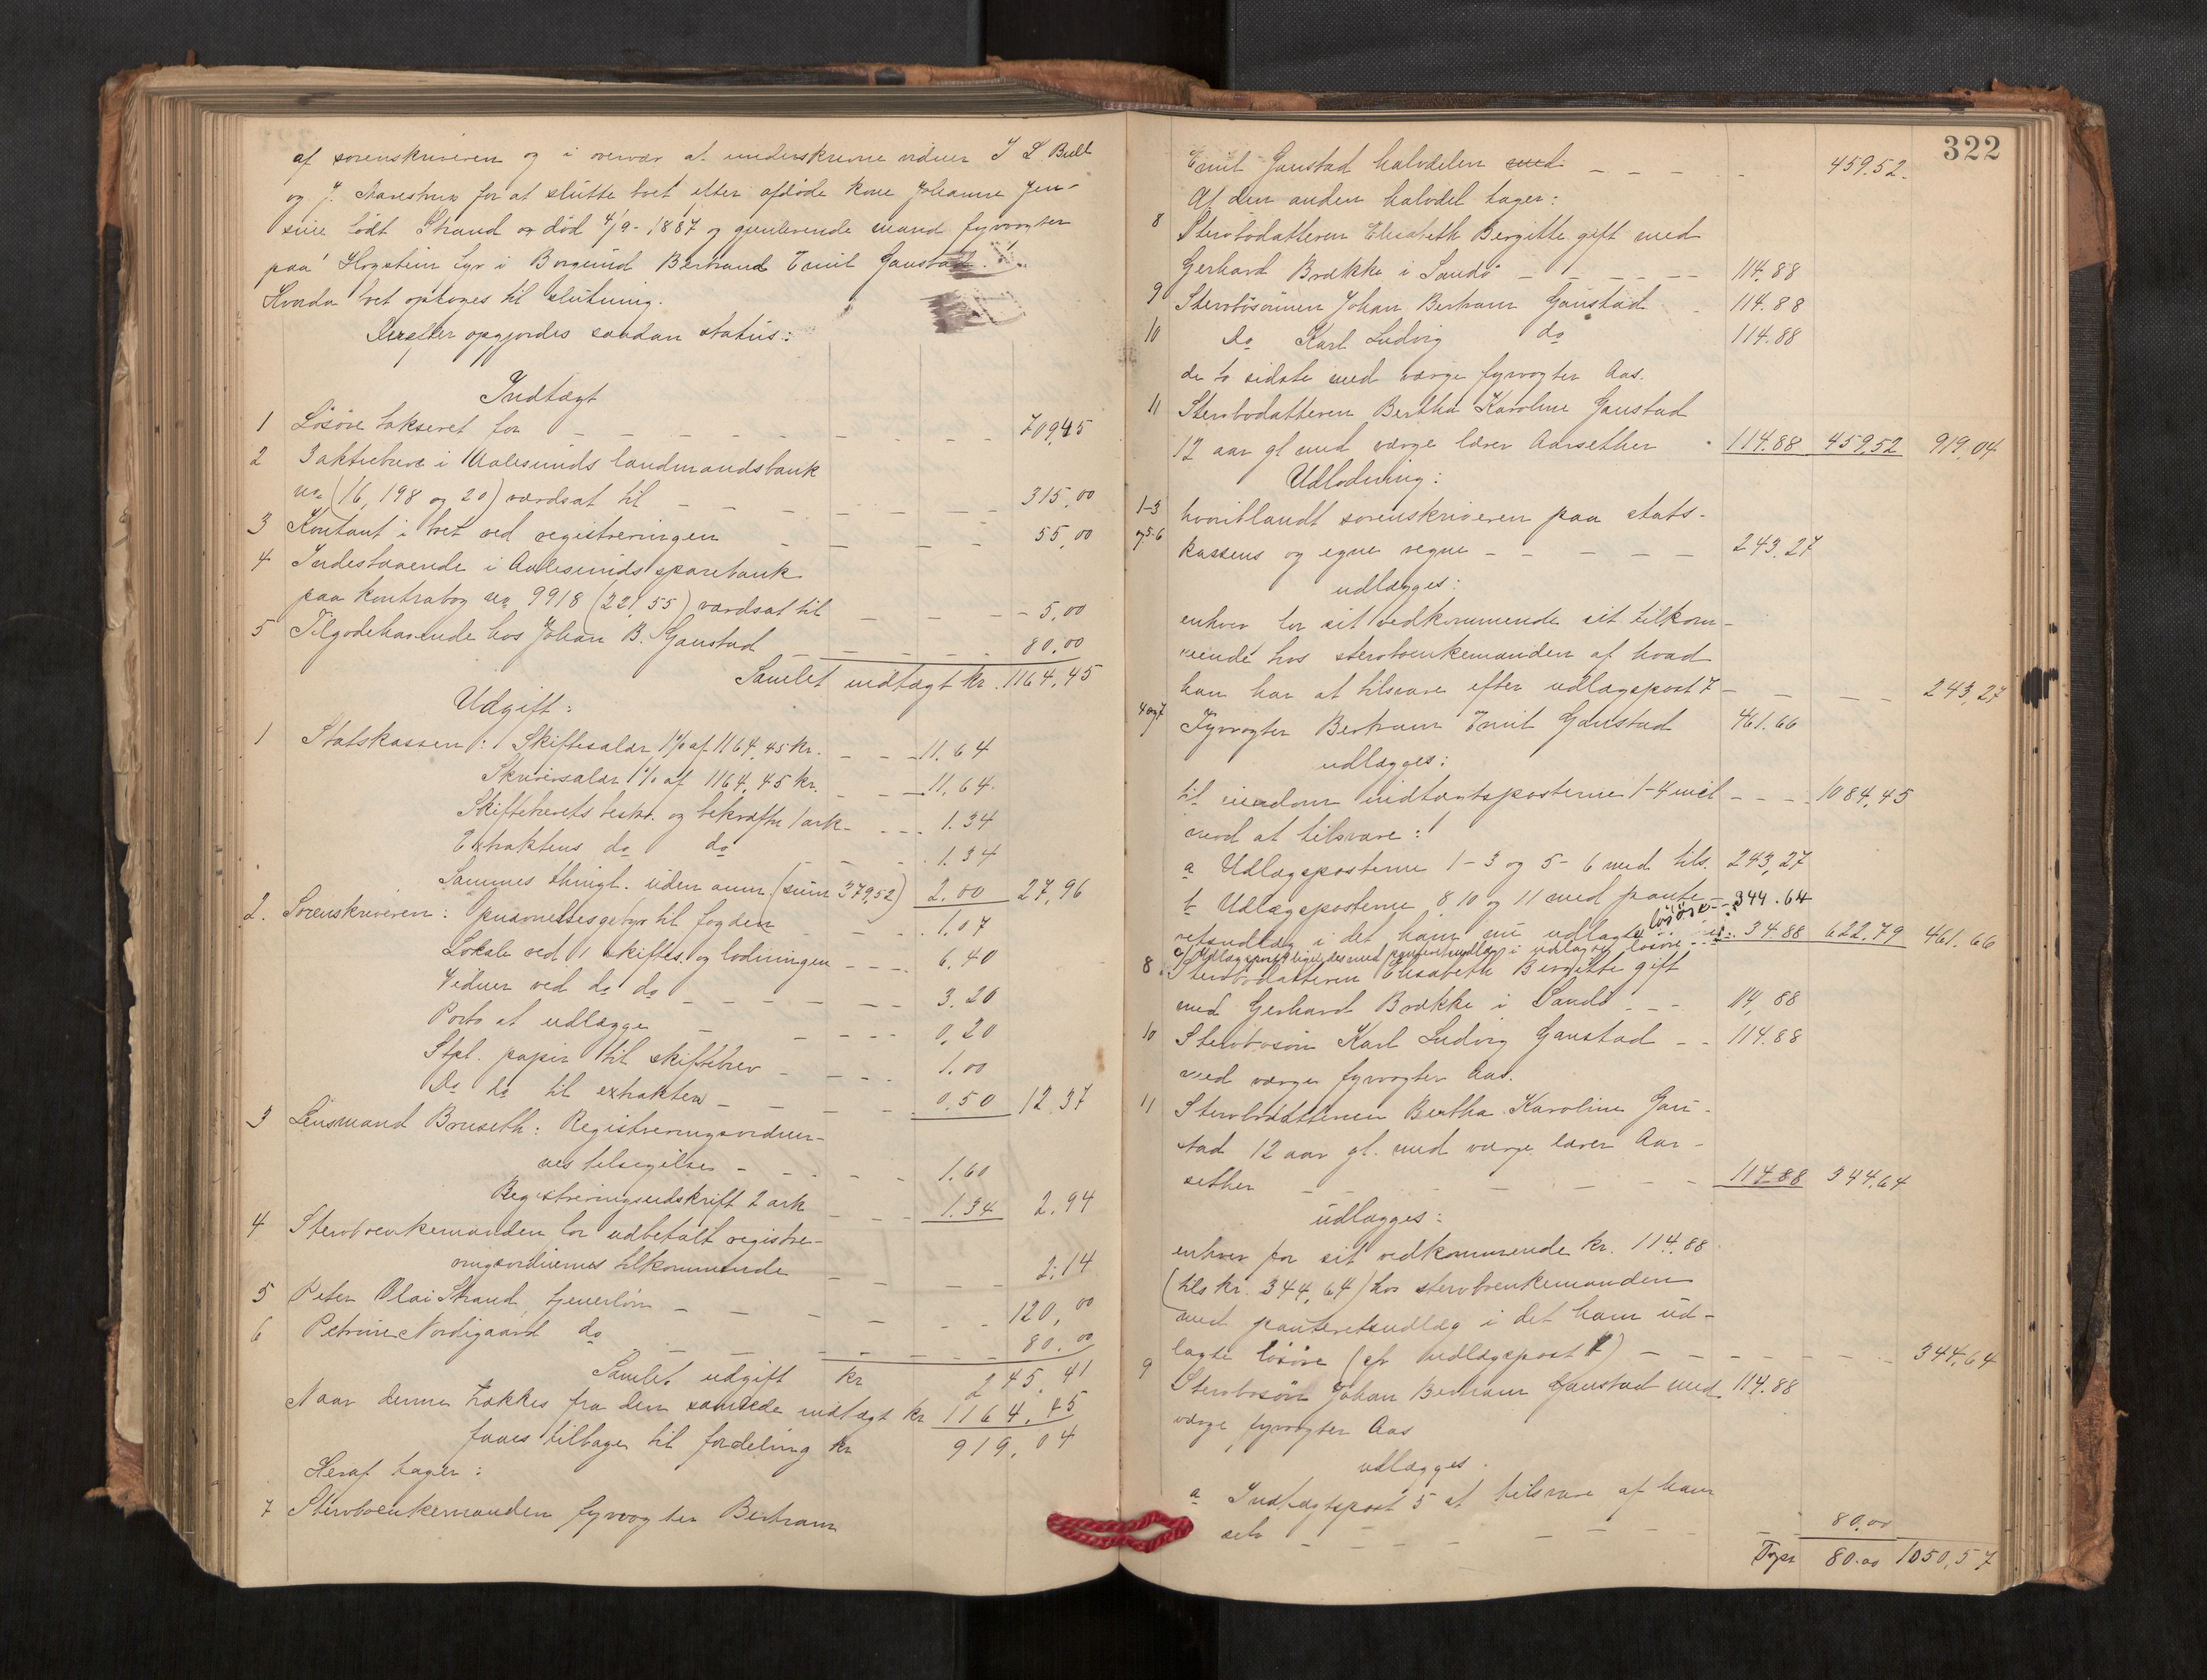 af sorenskriveren og i overvær af underskrevne vidner I L Bull
og J. Aarestrup for at slutte boet efter afdøde kone Johanne Jen-
sine født Strand og død 4/9-1887 og gjenlevende mand fyrvogter
paa Høgstein fyr i Borgund Bertrand Emil Gaustad.
Hvorda boet optoges til slutning.
Derefter opgjordes saadan status:
Indtægt
1 Løsøre takseret for 709,45
2 3 aktiebreve i Aalesunds landmandsbank
no (16, 198 og 20) værdsat til 315,00
3 Kontant i boet ved registreringen 55,00
4 Indestaaende i Aalesunds sparebank
paa kontrabog no 9918 (221,55) værdsat til 5,00
5 Tilgodehavende hos Johan B. Gaustad 80,00
Samlet indtægt kr. 1164,45
Udgift:
1 Statskassen: Skiftesalær 1% af 1164,45 kr. 11.64
Skriversalær 1% af 1164,45 kr. 11.64
Skiftebrevets beskr. og bekræftn 1 ark 1.34
Extraktens do do 1.34
Sammes thingl. uden anm. (sum 379,52) 2.00 27,96
2. Sorenskriveren: gebyr til fogden 1.07
Lokale ved 1 skiftes. og lodningen 6.40
Vidner ved do do 3.20
Porto at udlægge 0,20
Stpl. papir til skiftebrev 1.00
Do do til extrakten 0,50 12.37
3 Lensmand Bruseth: Registreringsvidner-
nes tilsigelse 1.60
Registreringsudskrift 2 ark 1.34 2.94
4 Sterboenkemanden for udbetalt registre-
ringsvidnernes tilkommende 2.14
5 Peter Olai Strand, tjenerløn 120,00
6 Petrine Nordigaard do 80.00
Samlet udgift kr 245.41
Naar denne trækkes fra den samlede indtægt kr 1164.45
faaes tilbage til fordeling kr 919.04
Heraf tager:
7 Sterboenkemanden fyrvogter Bertram
322
Emil Gaustad halvdelen med 459.52.
Af den anden halvdel tager:
8 Sterbodatteren Elisabeth Bergitte gift med
Gerhard Brække i Sandø 114.88
9 Sterbosønnen Johan Bertram Gaustad 114.88
10 do Karl Ludvig do 114.88
de to sidste med værge fyrvogter Aas.
11 Sterbodatteren Bertha Karoline Gaustad
12 aar gl med værge lærer Aarsether 114.88 459.52 919,04
Udlodning:
1-3 hvoriblandt sorenskriveren paa stats-
og 5-6 kassens og egne vegne 243,27
udlægges:
enhver for sit vedkommende sit tilkom-
mende hos sterboenkemanden af hvad
han har at tilsvare efter udlægspost 7 243,27
4 og 7 Fyrvogter Bertram Emil Gaustad 461.66
udlægges:
til eiendom indtægtsposterne 1-4 incl 1084,45
mod at tilsvare:
a Udlægsposterne 1-3 og 5-6 med tils. 243,27
b Udlægsposterne 8, 10 og 11 med pante- 344.64
retsudlæg i det ham nu udlagte løsøre
c/ Udlægspost 9 ligeledes med panteretsudlæg i udlagte løsøre 34.88 622.79 461.66
8 Sterbodatteren Elisabeth Bergitte gift
med Gerhard Brække i Sandø 114,88
10 Sterbosøn Karl Ludvig Gaustad 114.88
med værge fyrvogter Aas.
11 Sterbodatteren Bertha Karoline Gau-
stad 12 aar gl. med værge lærer Aar-
sether 114.88 344,64
udlægges:
enhver for sit vedkommende kr. 114.88
(tils kr. 344,64) hos sterboenkemanden
med panteretsudlæg i det ham ud-
lagte løsøre (cfr udlægspost 7) 344,64
9 Sterbosøn Johan Bertram Gaustad med 114.88
værge fyrvogter Aas
udlægges.
a Indtægtspost 5 at tilsvare af ham
selv 80.00
Trpr 80.00 1050,57